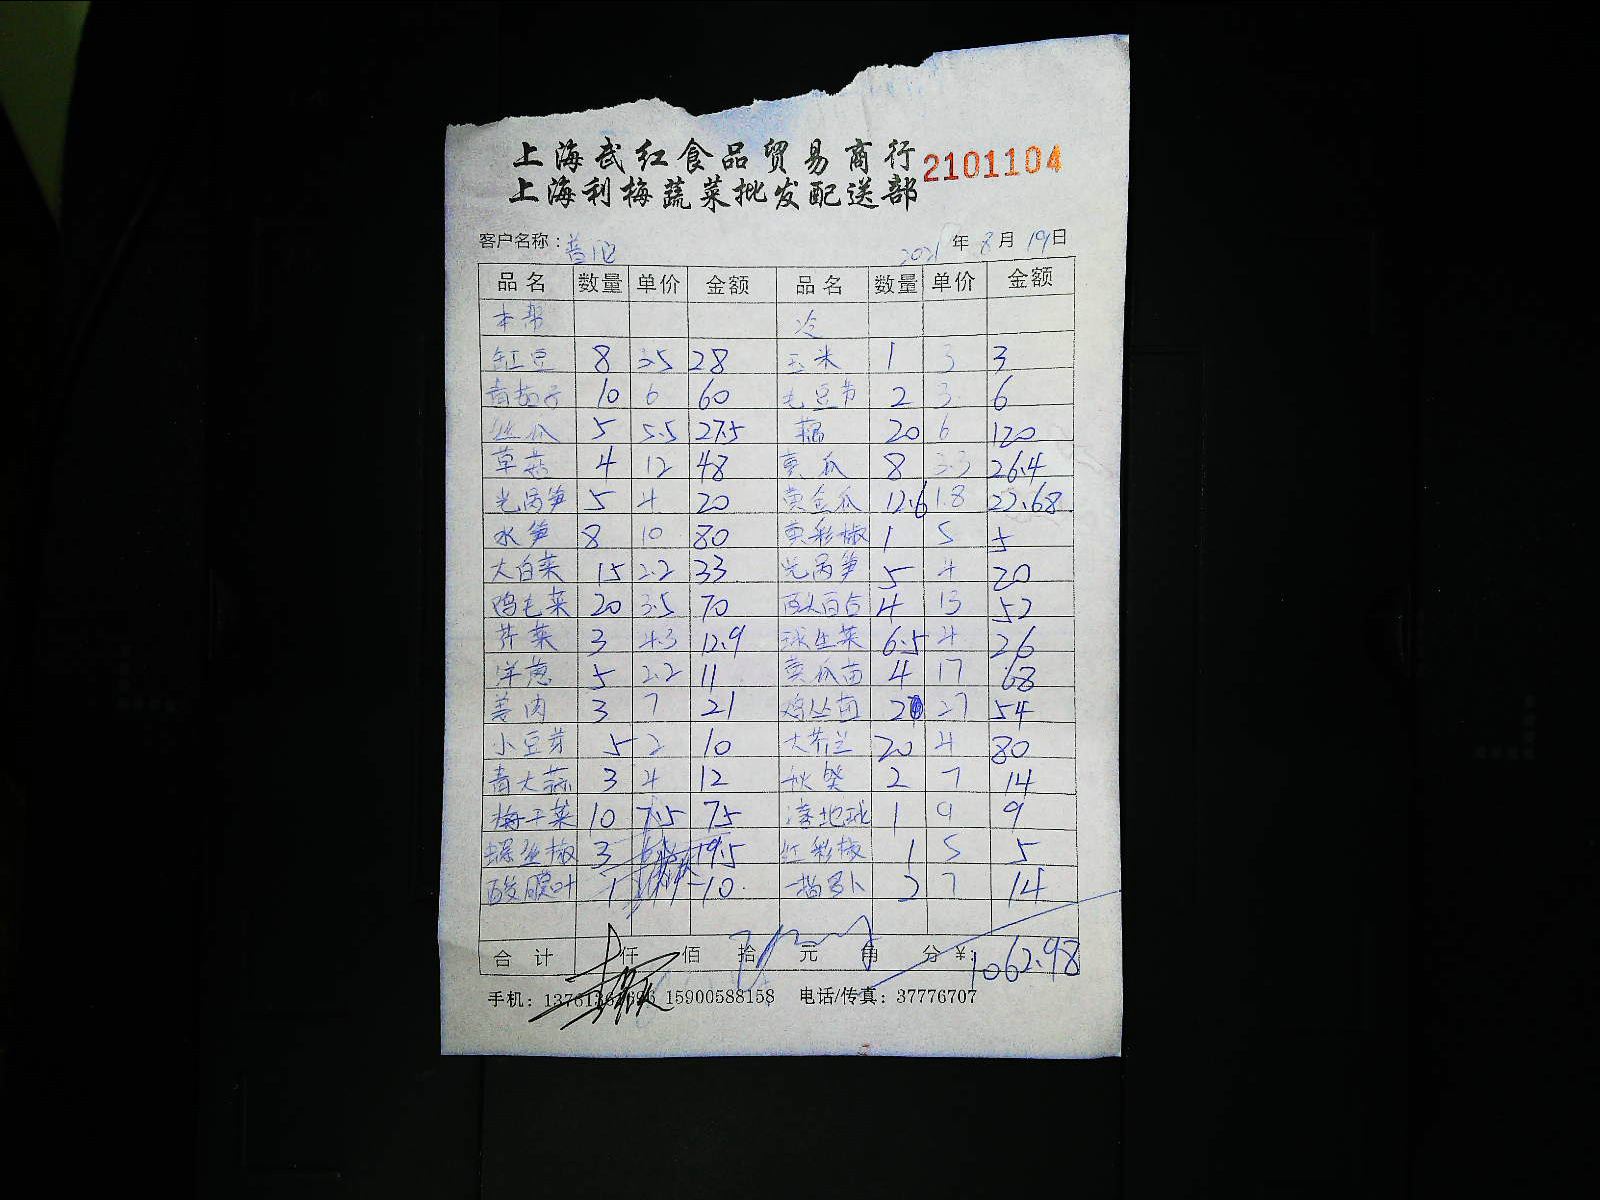 上海武红食品贸易商行 2101104
上海利梅蔬菜批发配送部
客户名称: 2021年8月19日
品名 数量 单价 金额 品名 数量 单价 金额
本帮 冷
缸豆 8 3.5 28 玉米 1 3 3
青茄子 10 6 60 毛豆节 2 3 6
丝瓜 5 5.5 27.5 藕 20 6 120
草菇 4 12 48 黄瓜 8 3.3 26.4
光莴笋 5 4 20 黄金瓜 12.6 1.8 22.68
水笋 8 10 80 黄彩椒 1 5 5
大白菜 15 2.2 33 光莴笋 5 4 20
鸡毛菜 20 3.5 70 百合 4 13 52
芹菜 3 4.3 12.9 球生菜 6.5 4 26
洋葱 5 2.2 11 黄瓜苗 4 17 68
姜肉 3 7 21 鸡丛菌 2 27 54
小豆芽 5 2 10 大芥兰 20 4 80
青大蒜 3 4 12 秋葵 2 7 14
梅干菜 10 7.5 75 落地球 1 9 9
螺丝椒 3 19.5 红彩椒 1 5 5
酸膜叶 1 10 指萝卜 2 7 14
合计 仟 佰 拾 元 角 分 ¥: 1062.98
手机: 15900588158 电话/传真: 37776707